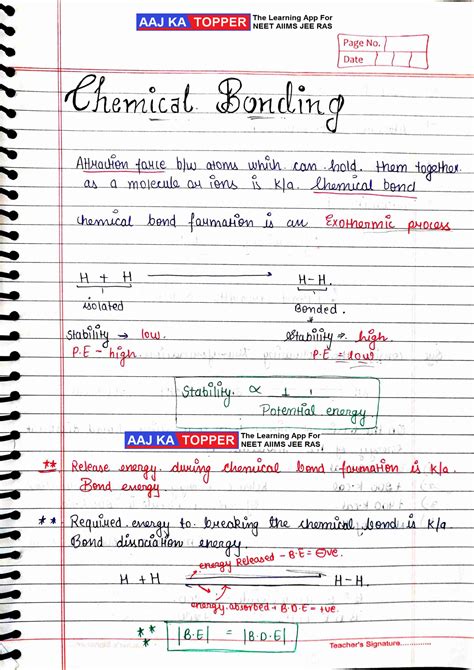 AAJ KA TOPPER The Learning App For NEET AIIMS JEE RAS
Page No.
Date
Chemical Bonding
Attraction force b/w atoms which can hold them together
as a molecule or ions is k/a Chemical bond
chemical bond formation is an Exothermic process
H + H ⟶ H-H.
isolated Bonded.
Stability → low. Stability → high.
P.E - high P.E = low
Stability. ∝ 1 / Potential energy
AAJ KA TOPPER The Learning App For NEET AIIMS JEE RAS
** Release energy during chemical bond formation is k/a
Bond energy.
** Required energy to breaking the chemical bond is k/a
Bond disociation energy.
energy Released - B.E = ⊖ve.
H + H H-H.
energy absorbed + B.D.E = +ve.
** |B.E| = |B.D.E|
Teacher's Signature..............